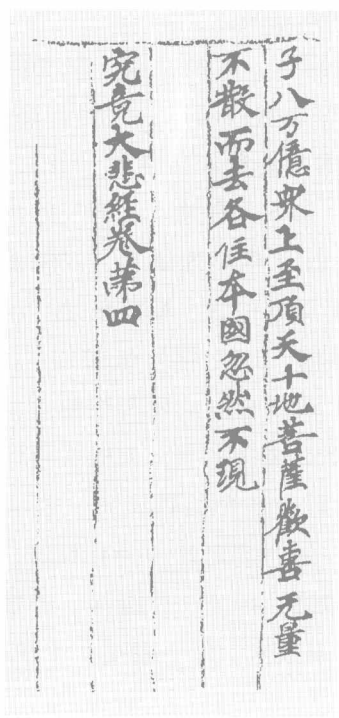 子八万億衆上至頂天十地菩薩歡喜无量
不散而去各住本國忽然不現
究竟大悲經卷第四